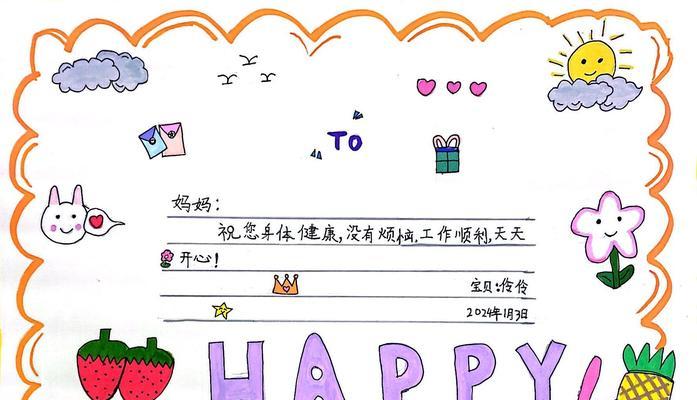 TO
妈妈：
祝您身体健康，没有烦恼，工作顺利，天天
开心！
宝贝：伶伶
2024年1月3日
HAPPY